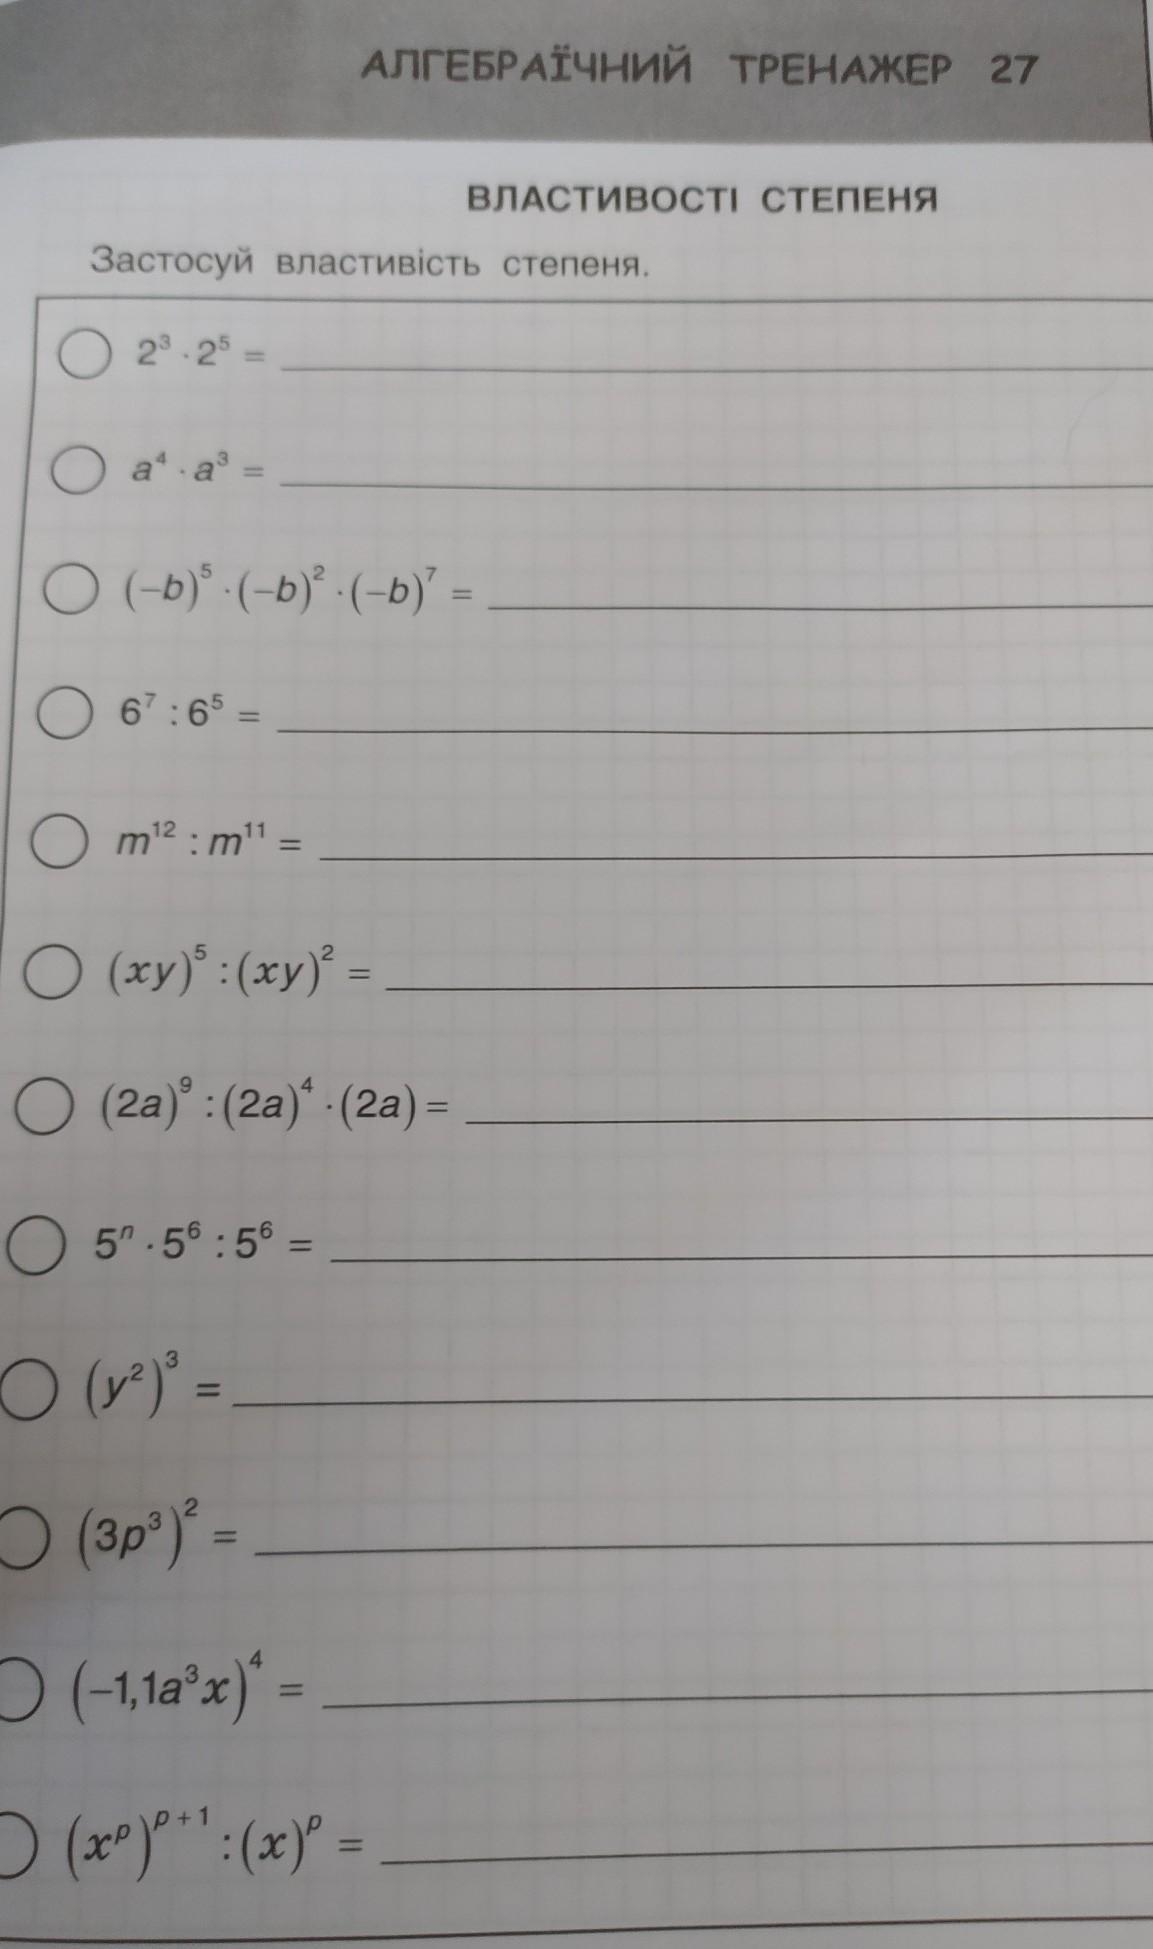 АЛГЕБРАЇЧНИЙ ТРЕНАЖЕР 27
ВЛАСТИВОСТІ СТЕПЕНЯ
Застосуй властивість степеня.
2³ · 2⁵ =
a⁴ · a³ =
(–b)⁵ · (–b)² · (–b)⁷ =
6⁷ : 6⁵ =
m¹² : m¹¹ =
(xy)⁵ : (xy)² =
(2a)⁹ : (2a)⁴ · (2a) =
5ⁿ · 5⁶ : 5⁶ =
(y²)³ =
(3p³)² =
(–1,1a³x)⁴ =
(xᵖ)ᵖ⁺¹ : (x)ᵖ =